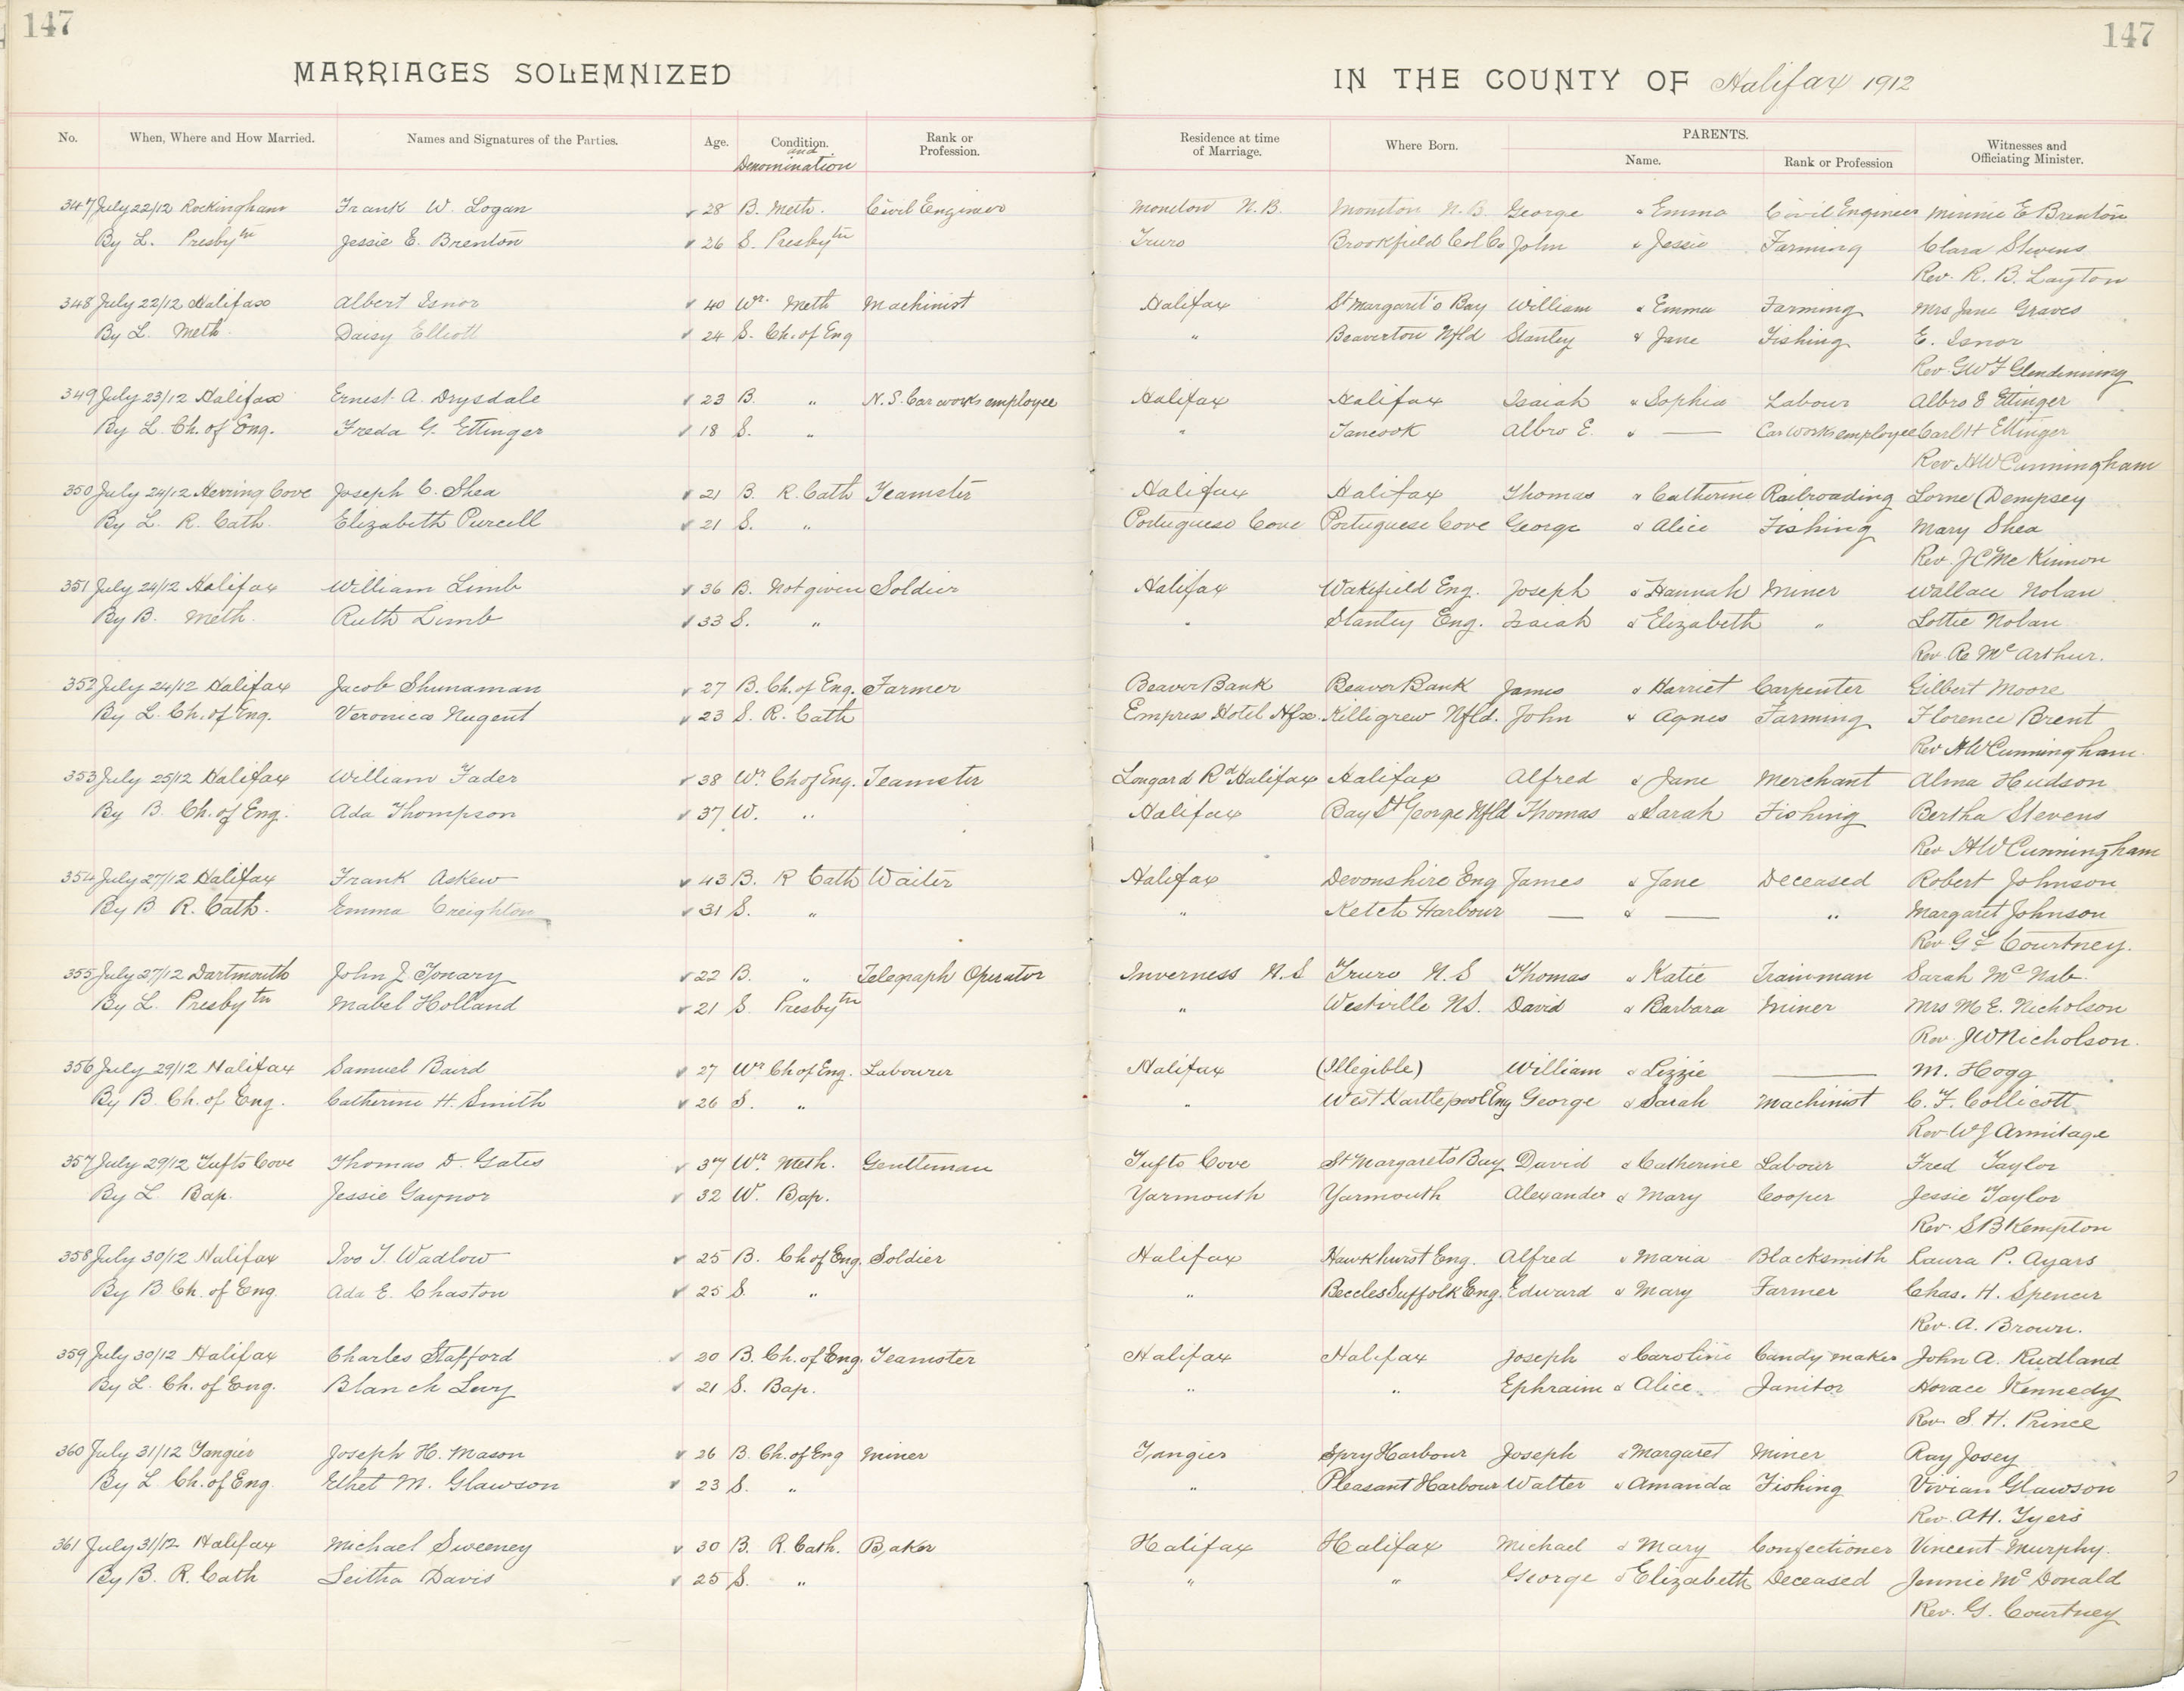 147 147
MARRIAGES SOLEMNIZED IN THE COUNTY OF Halifax 1912
No. When, Where and How Married. Names and Signatures of the Parties. Age. Condition. and Denomination Rank or Profession. Residence at time of Marriage. Where Born. PARENTS. Name. Rank or Profession Witnesses and Officiating Minister.
347 July 22/12 Rockingham Frank W. Logan 28 B. Meth. Civil Engineer Moncton N.B. Moncton N.B. George & Emma Civil Engineer Minnie E Brenton
By L. Presbytn Jessie E. Brenton 26 S. Presbytn Truro Brookfield Col Co John & Jessie Farming Clara Stevens
Rev. R. B. Layton
348 July 22/12 Halifax Albert Isnor 40 Wr. Meth Machinist Halifax St Margaret's Bay William & Emma Farming Mrs Jane Graves
By L. Meth. Daisy Elliott 24 S. Ch. of Eng " Beaverton Nfld Stanley & Jane Fishing E. Isnor
Rev. GWF Glendinning
349 July 23/12 Halifax Ernest A. Drysdale 23 B. " N.S. Car works employee Halifax Halifax Isaiah & Sophia Labour Albro E Ettinger
By L. Ch. of Eng. Freda G. Ettinger 18 S. " " Tancook Albro E. & — Car works employee Carl H Ettinger
Rev. HW Cunningham
350 July 24/12 Herring Cove Joseph C. Shea 21 B. R. Cath Teamster Halifax Halifax Thomas & Catherine Railroading Lorne Dempsey
By L. R. Cath. Elizabeth Purcell 21 S. " Portuguese Cove Portuguese Cove George & Alice Fishing Mary Shea
Rev. JC McKinnon
351 July 24/12 Halifax William Limb 36 B. Not given Soldier Halifax Wakefield Eng. Joseph & Hannah Miner Wallace Nolan
By B. Meth. Ruth Limb 33 S. " " Stanley Eng. Isaiah & Elizabeth " Lottie Nolan
Rev. Mc Arthur.
352 July 24/12 Halifax Jacob Shunaman 27 B. Ch. of Eng. Farmer Beaver Bank Beaver Bank James & Harriet Carpenter Gilbert Moore
By L. Ch. of Eng. Veronica Nugent 23 S. R. Cath Empress Hotel Hfx. Killigrew Nfld. John & Agnes Farming Florence Brent
Rev HW Cunningham.
353 July 25/12 Halifax William Fader 38 Wr. Ch of Eng. Teamster Longard Rd Halifax Halifax Alfred & Jane Merchant Alma Hudson
By B. Ch. of Eng. Ada Thompson 37 W. " Halifax Bay St George Nfld Thomas & Sarah Fishing Bertha Stevens
Rev HW Cunningham
354 July 27/12 Halifax Frank Askew 43 B. R Cath Waiter Halifax Devonshire Eng James & Jane Deceased Robert Johnson
By B R. Cath. Emma Creighton 31 S. " " Ketch Harbour — & — " Margaret Johnson
Rev. G Courtney.
355 July 27/12 Dartmouth John J Tonary 22 B. " Telegraph Operator Inverness N.S Truro N.S Thomas & Katie Trainman Sarah McNab
By L. Presbytn Mabel Holland 21 S. Presbytn " Westville NS. David & Barbara Miner Mrs M E. Nicholson
Rev. JW Nicholson.
356 July 29/12 Halifax Samuel Baird 27 Wr Ch of Eng. Labourer Halifax (Illegible) William & Lizzie — M. Hogg
By B. Ch. of Eng. Catherine H. Smith 26 S. " " West Hartlepool Eng George & Sarah Machinist C. F. Collicott
Rev WJ Armitage
357 July 29/12 Tufts Cove Thomas D. Gates 37 Wr. Meth. Gentleman Tufts Cove St Margaret's Bay David & Catherine Labour Fred Taylor
By L Bap. Jessie Gaynor 32 W. Bap. Yarmouth Yarmouth Alexander & Mary Cooper Jessie Taylor
Rev. SB Kempton
358 July 30/12 Halifax Ivo T. Wadlow 25 B. Ch of Eng. Soldier Halifax Hawkhurst Eng. Alfred & Maria Blacksmith Laura P. Ayars
By B Ch. of Eng Ada E. Chaston 25 S. " " Beccles Suffolk Eng. Edward & Mary Farmer Chas. H. Spencer
Rev. A. Brown.
359 July 30/12 Halifax Charles Stafford 20 B. Ch. of Eng. Teamster Halifax Halifax Joseph & Caroline Candy maker John A. Rudland
By L. Ch. of Eng. Blanch Levy 21 S. Bap. " " Ephraim & Alice Janitor Horace Kennedy
Rev. S. H. Prince
360 July 31/12 Tangier Joseph H. Mason 26 B. Ch. of Eng Miner Tangier Spry Harbour Joseph & Margaret Miner Ray Josey
By L Ch. of Eng. Ethel M. Glawson 23 S. " " Pleasant Harbour Walter & Amanda Fishing Vivian Glawson
Rev. AH. Tyers
361 July 31/12 Halifax Michael Sweeney 30 B. R. Cath. Baker Halifax Halifax Michael & Mary Confectioner Vincent Murphy.
By B. R. Cath Leitha Davis 25 S. " " " George & Elizabeth Deceased Jennie McDonald
Rev. G. Courtney